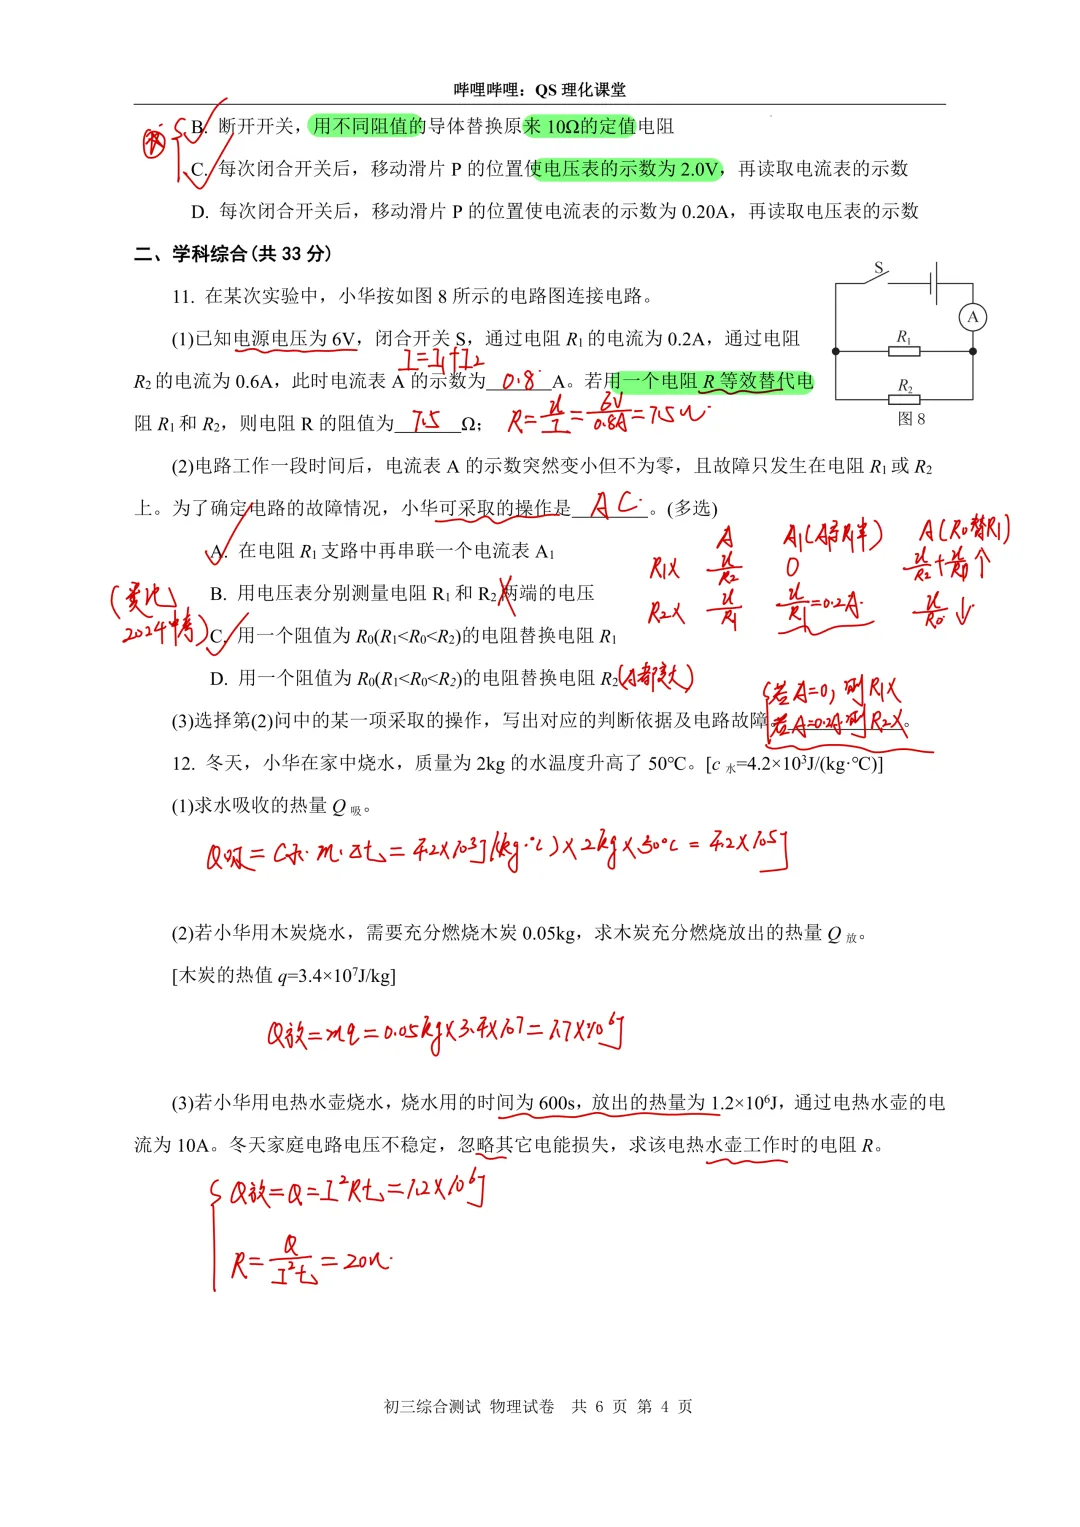 哔哩哔哩：QS 理化课堂
B. 断开开关，用不同阻值的导体替换原来 10Ω的定值电阻
C. 每次闭合开关后，移动滑片 P 的位置使电压表的示数为 2.0V，再读取电流表的示数
D. 每次闭合开关后，移动滑片 P 的位置使电流表的示数为 0.20A，再读取电压表的示数
二、学科综合(共 33 分)
11. 在某次实验中，小华按如图 8 所示的电路图连接电路。
S
A
R₁
R₂
图 8
(1)已知电源电压为 6V，闭合开关 S，通过电阻 R₁ 的电流为 0.2A，通过电阻
I=I₁+I₂
R₂ 的电流为 0.6A，此时电流表 A 的示数为 0.8 A。若用一个电阻 R 等效替代电
阻 R₁ 和 R₂，则电阻 R 的阻值为 7.5 Ω； R=U/I=6V/0.8A=7.5Ω
(2)电路工作一段时间后，电流表 A 的示数突然变小但不为零，且故障只发生在电阻 R₁ 或 R₂
上。为了确定电路的故障情况，小华可采取的操作是 AC 。(多选)
A A₁(A₁与R₁串) A(R₀替R₁)
A. 在电阻 R₁ 支路中再串联一个电流表 A₁
R₁X U/R₂ 0 U/R₂+U/R₀↑
B. 用电压表分别测量电阻 R₁ 和 R₂ 两端的电压
R₂X U/R₁ U/R₁=0.2A U/R₀↓
2024中考)
C. 用一个阻值为 R₀(R₁<R₀<R₂)的电阻替换电阻 R₁
D. 用一个阻值为 R₀(R₁<R₀<R₂)的电阻替换电阻 R₂ (A都变大)
若A=0，则R₁X
(3)选择第(2)问中的某一项采取的操作，写出对应的判断依据及电路故障。 若A=0.2A则R₂X 。
12. 冬天，小华在家中烧水，质量为 2kg 的水温度升高了 50℃。[c 水=4.2×10³J/(kg·℃)]
(1)求水吸收的热量 Q 吸。
Q吸=C水·m·Δt=4.2×10³J/(kg·℃)×2kg×50℃=4.2×10⁵J
(2)若小华用木炭烧水，需要充分燃烧木炭 0.05kg，求木炭充分燃烧放出的热量 Q 放。
[木炭的热值 q=3.4×10⁷J/kg]
Q放=mq=0.05kg×3.4×10⁷=1.7×10⁶J
(3)若小华用电热水壶烧水，烧水用的时间为 600s，放出的热量为 1.2×10⁶J，通过电热水壶的电
流为 10A。冬天家庭电路电压不稳定，忽略其它电能损失，求该电热水壶工作时的电阻 R。
Q放=Q=I²Rt=1.2×10⁶J
R=Q/I²t=20Ω
初三综合测试 物理试卷 共 6 页 第 4 页